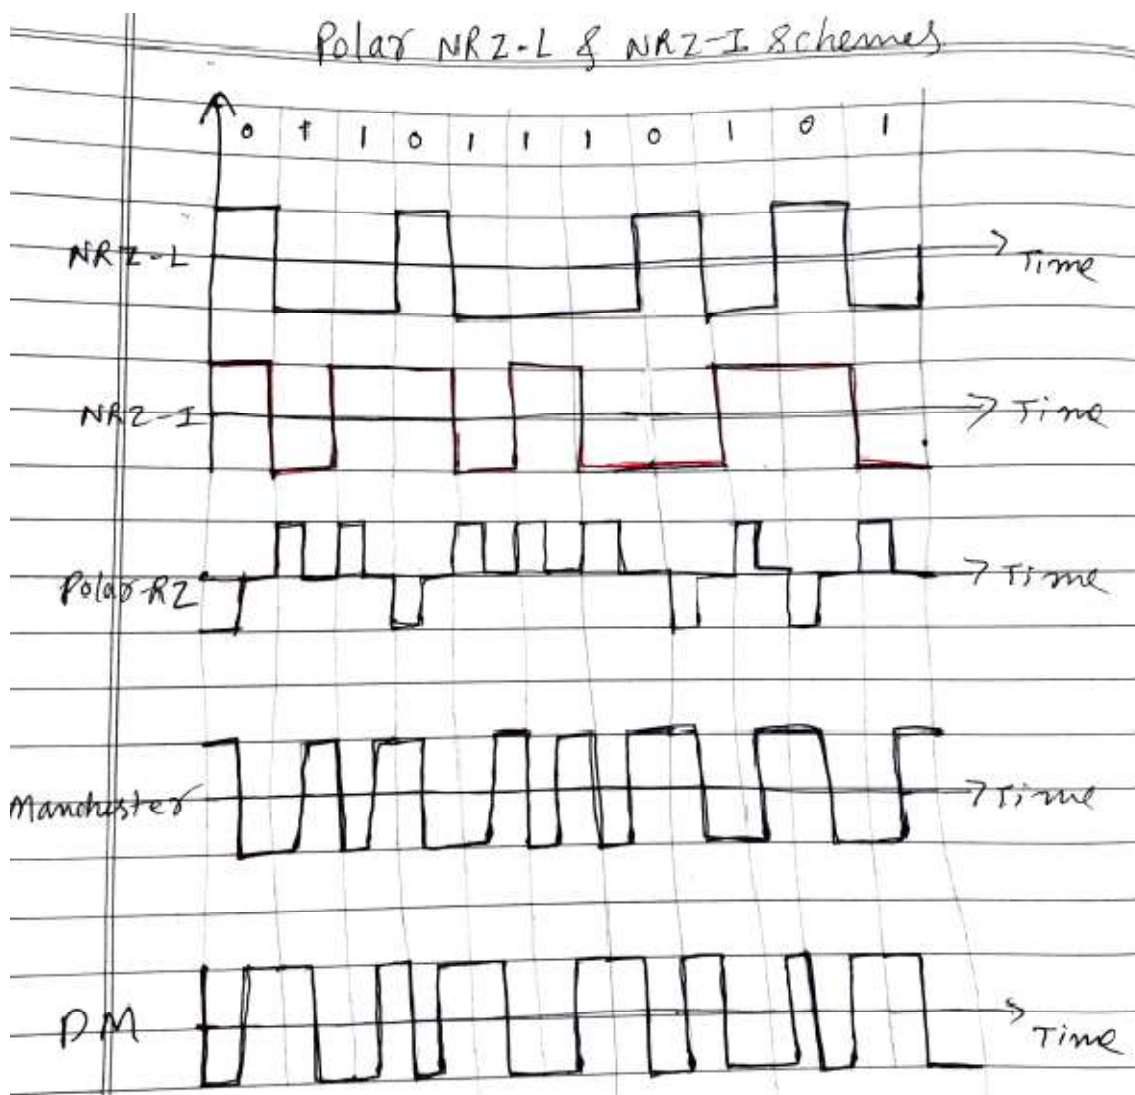 Polar NRZ-L & NRZ-I Schemes
0 1 1 0 1 1 1 0 1 0 1
NRZ-L Time
NRZ-I Time
Polar-RZ Time
Manchester Time
DM Time